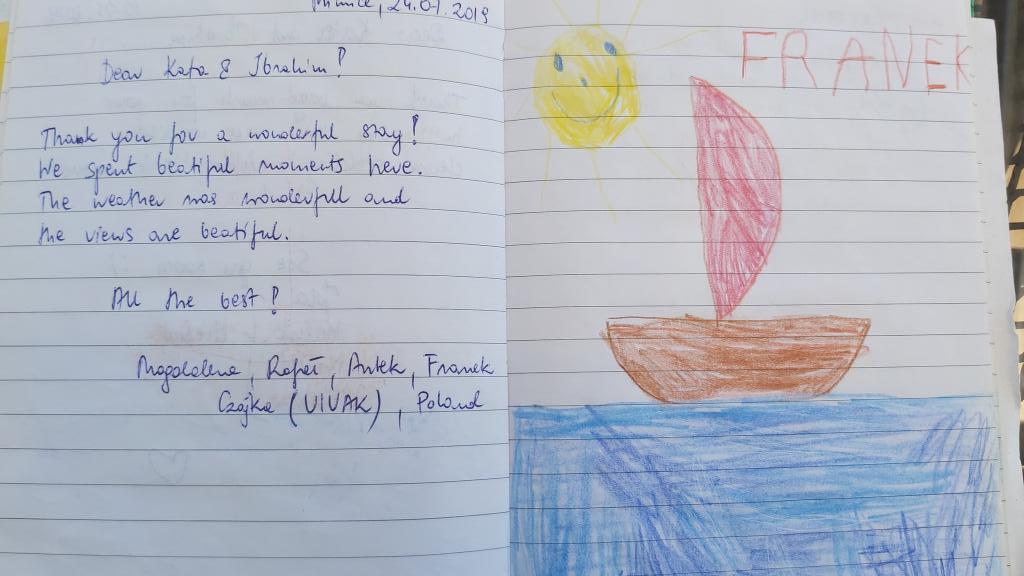 Mimice, 24.07.2019
Dear Kata & Ibrahim!
Thank you for a wonderful stay!
We spent beatiful moments here.
The weather was wonderfull and
the views are beatiful.
All the best!
Magdalena, Rafał, Antek, Franek
Czajka (VIVAK), Poland
FRANEK